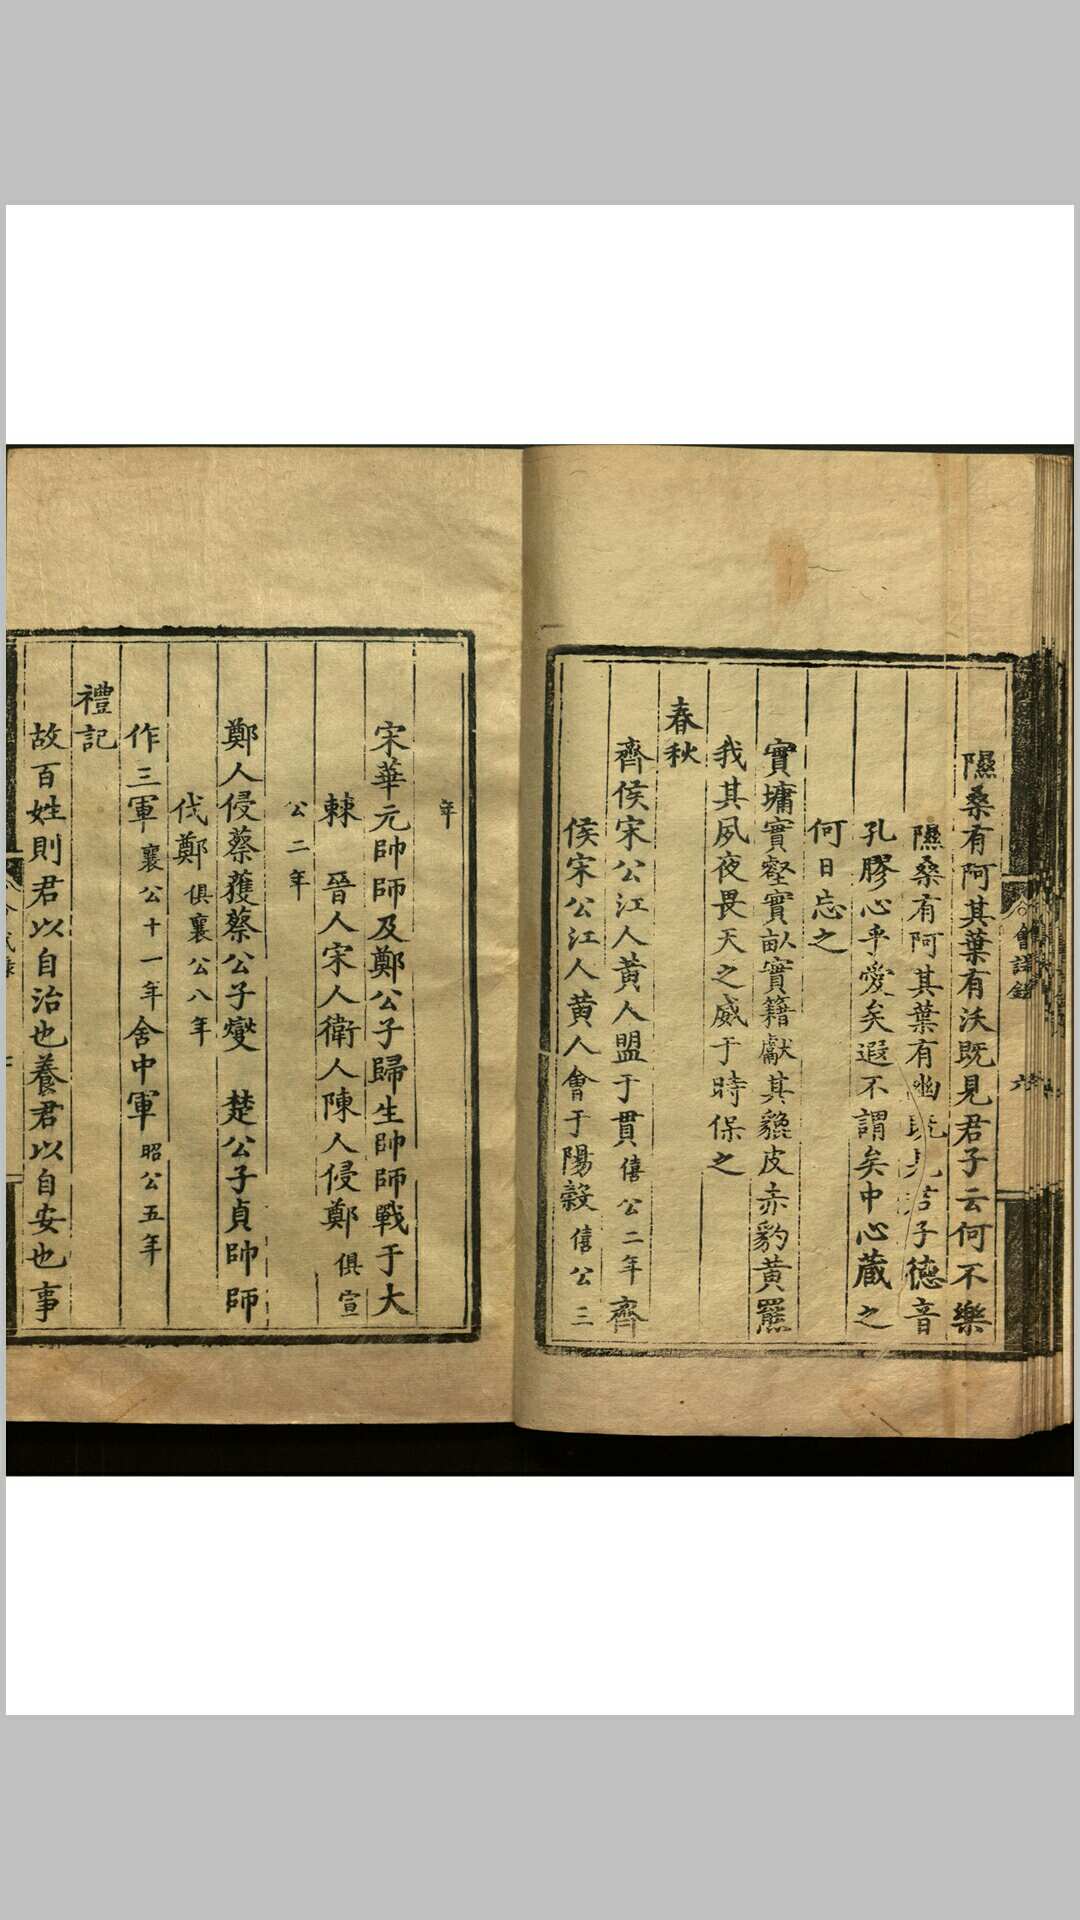 會試錄
六
隰桑有阿其葉有沃既見君子云何不樂
隰桑有阿其葉有幽既見君子德音
孔膠心乎愛矣遐不謂矣中心蔵之
何日忘之
實墉實壑實畝實籍獻其貔皮赤豹黄羆
我其夙夜畏天之威于時保之
春秋
齊侯宋公江人黄人盟于貫僖公二年齊
侯宋公江人黄人會于陽榖僖公三
年
宋華元帥師及鄭公子歸生帥師戰于大
棘 晉人宋人衛人陳人侵鄭俱宣
公二年
鄭人侵蔡蒦蔡公子燮 楚公子貞帥師
伐鄭俱襄公八年
作三軍襄公十一年舍中軍昭公五年
禮記
故百姓則君以自治也養君以自安也事